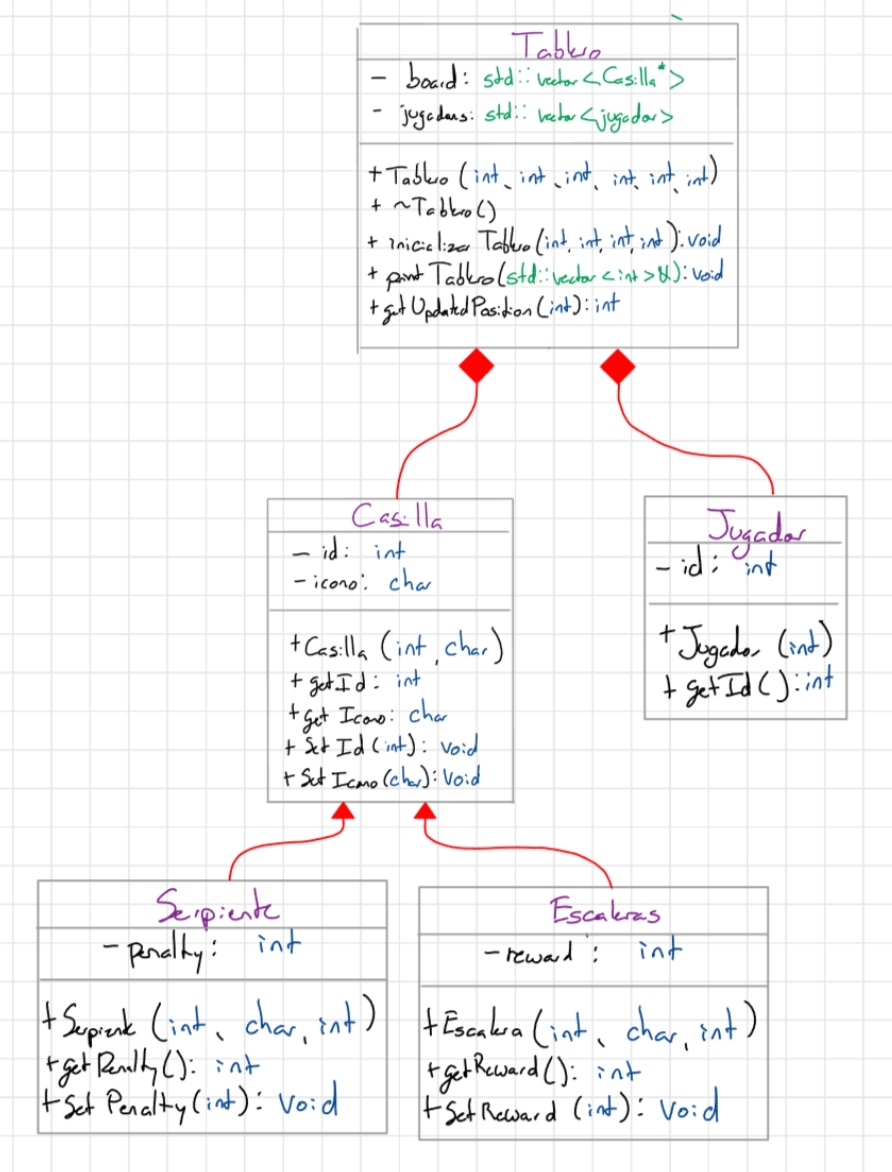 Tablero
- board: std::vector<Casilla*>
- jugadores: std::vector<jugador>
+ Tablero (int, int, int, int, int, int)
+ ~Tablero()
+ inicializar Tablero(int, int, int, int): void
+ print Tablero(std::vector<int>&): void
+ getUpdatedPosition(int): int
Casilla
- id: int
- icono: char
+ Casilla (int, char)
+ getId: int
+ get Icono: char
+ Set Id(int): void
+ Set Icono(char): Void
Jugador
- id: int
+ Jugador (int)
+ getId(): int
Serpiente
- penalty: int
+ Serpiente (int, char, int)
+ getPenalty(): int
+ Set Penalty(int): Void
Escaleras
- reward: int
+ Escalera (int, char, int)
+ getReward(): int
+ SetReward (int): Void